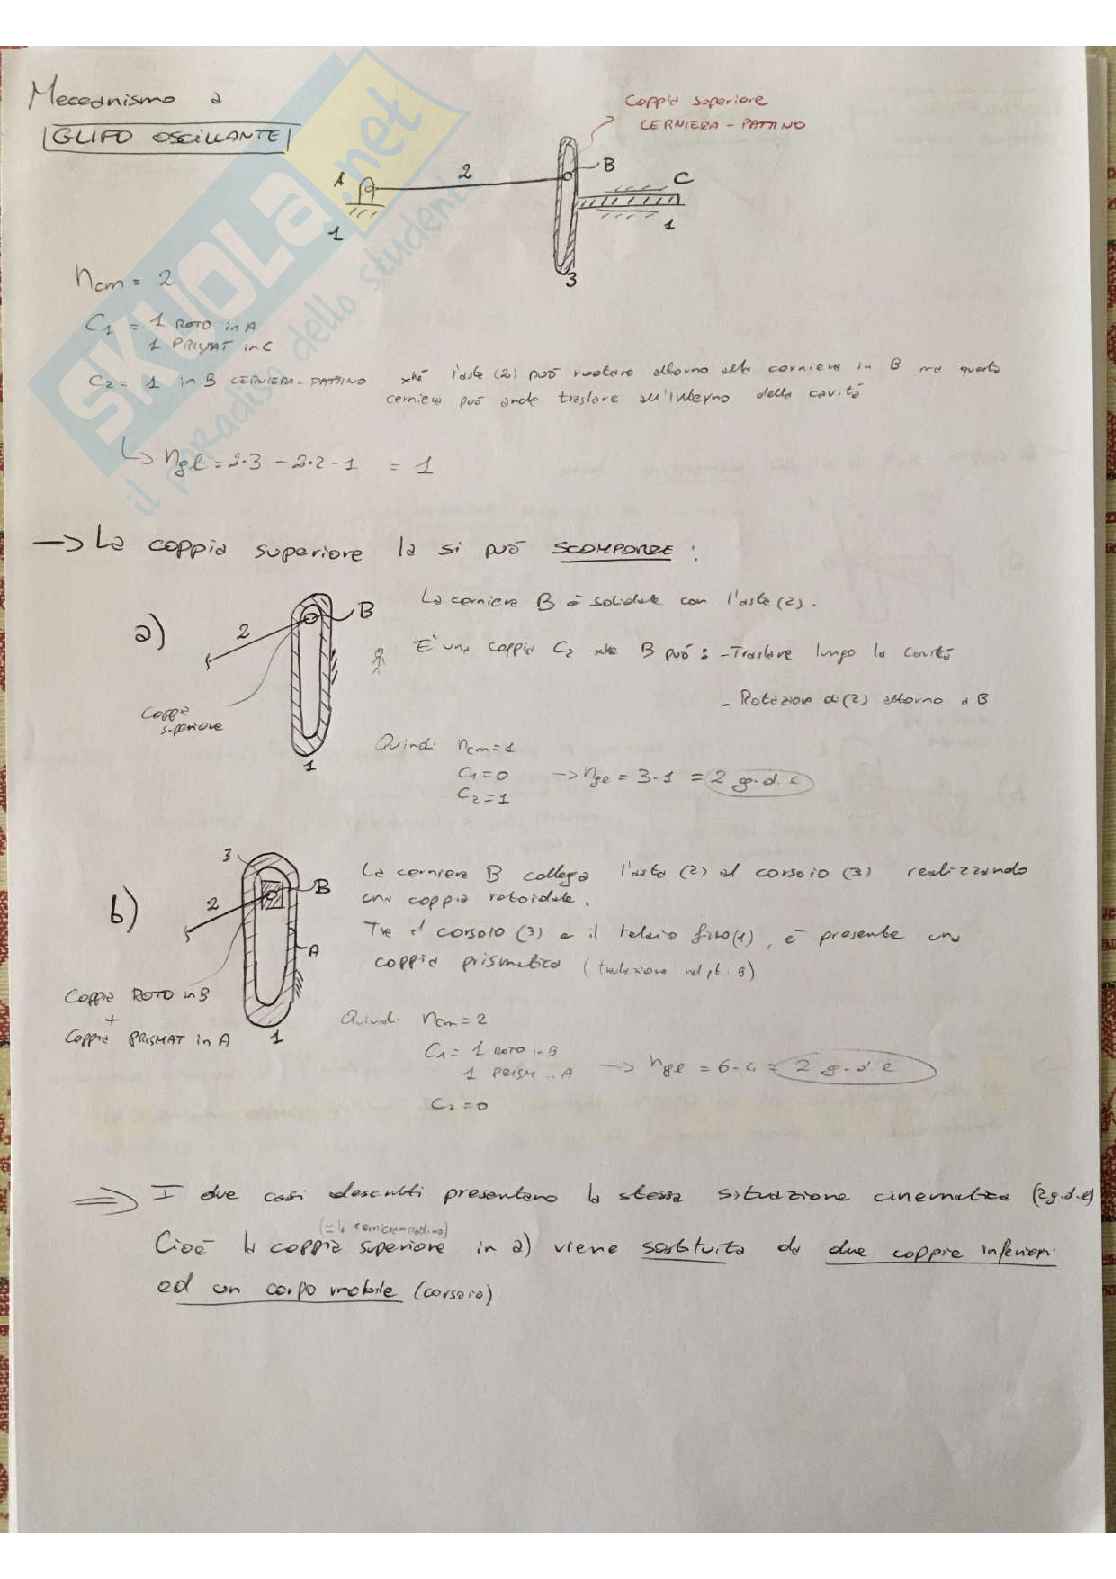 Meccanismo a
GLIFO OSCILLANTE
Coppia superiore
CERNIERA - PATTINO
A
2
B
C
1
1
3
ncm = 2
C1 = 1 ROTO in A
1 PRISMAT in C
C2 = 1 in B CERNIERA-PATTINO xké l'asta (2) può ruotare attorno alla cerniera in B ma questa
cerniera può anche traslare all'interno della cavità
↳ ngl = 2·3 - 2·2 - 1 = 1
SKUOLA.net
il paradiso dello studente
→ La coppia superiore la si può SCOMPORRE :
a)
2
B
1
Coppia
superiore
La cerniera B è solidale con l'asta (2).
E' una coppia C2 xké B può : - Traslare lungo la cavità
- Rotazione di (2) attorno a B
Quindi ncm = 1
C1 = 0 → nge = 3-1 = 2 g.d.e
C2 = 1
b)
3
2
B
A
1
Coppia ROTO in B
+
Coppia PRISMAT in A
La cerniera B collega l'asta (2) al corsoio (3) realizzando
una coppia rotoidale.
Tra il corsoio (3) e il telaio fisso (1), è presente una
coppia prismatica (traslazione nel pt. B)
Quindi ncm = 2
C1 = 1 ROTO in B
1 PRISM in A → nge = 6-4 = 2 g.d.e
C2 = 0
⇒ I due casi descritti presentano la stessa situazione cinematica (2 g.d.e)
(= la cerniera-pattino)
Cioè la coppia superiore in a) viene sostituita da due coppie inferiori
ed un corpo mobile (corsoio)